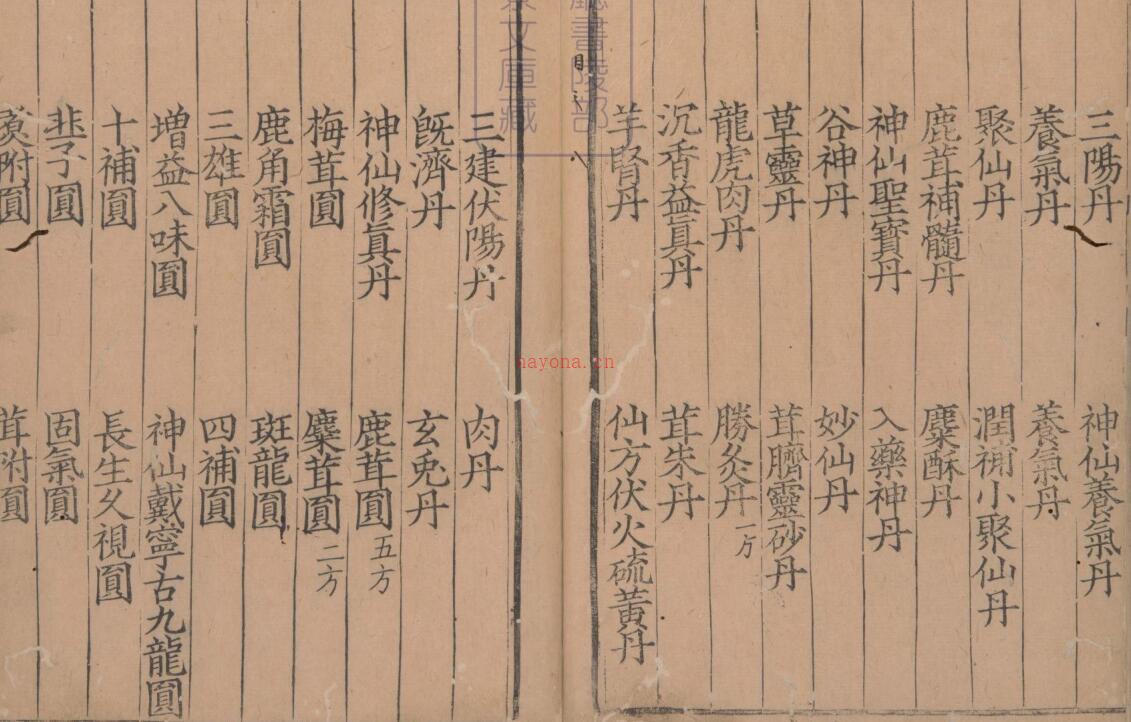 三陽丹 神仙養氣丹
養氣丹 養氣丹
聚仙丹 潤補小聚仙丹
鹿茸補髓丹 麋酥丹
神仙聖寶丹 入藥神丹
谷神丹 妙仙丹
草靈丹 茸臍靈砂丹
龍虎肉丹 勝灸丹一方
沉香益真丹 茸朱丹
羊腎丹 仙方伏火硫黃丹
文庫藏
三建伏陽丹 肉丹
既濟丹 玄兎丹
神仙修眞丹 鹿茸圓五方
梅茸圓 麋茸圓二方
鹿角霜圓 斑龍圓
三雄圓 四補圓
增益八味圓 神仙戴寧古九龍圓
十補圓 長生久視圓
韭子圓 固氣圓
附圓 茸附圓
nayona.cn